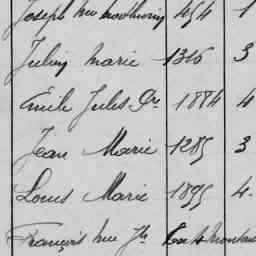 Joseph 454 1
Julien Marie 1316 3
Emile Jules 1884 4
Jean Marie 1285 3
Louis Marie 1895 4
François